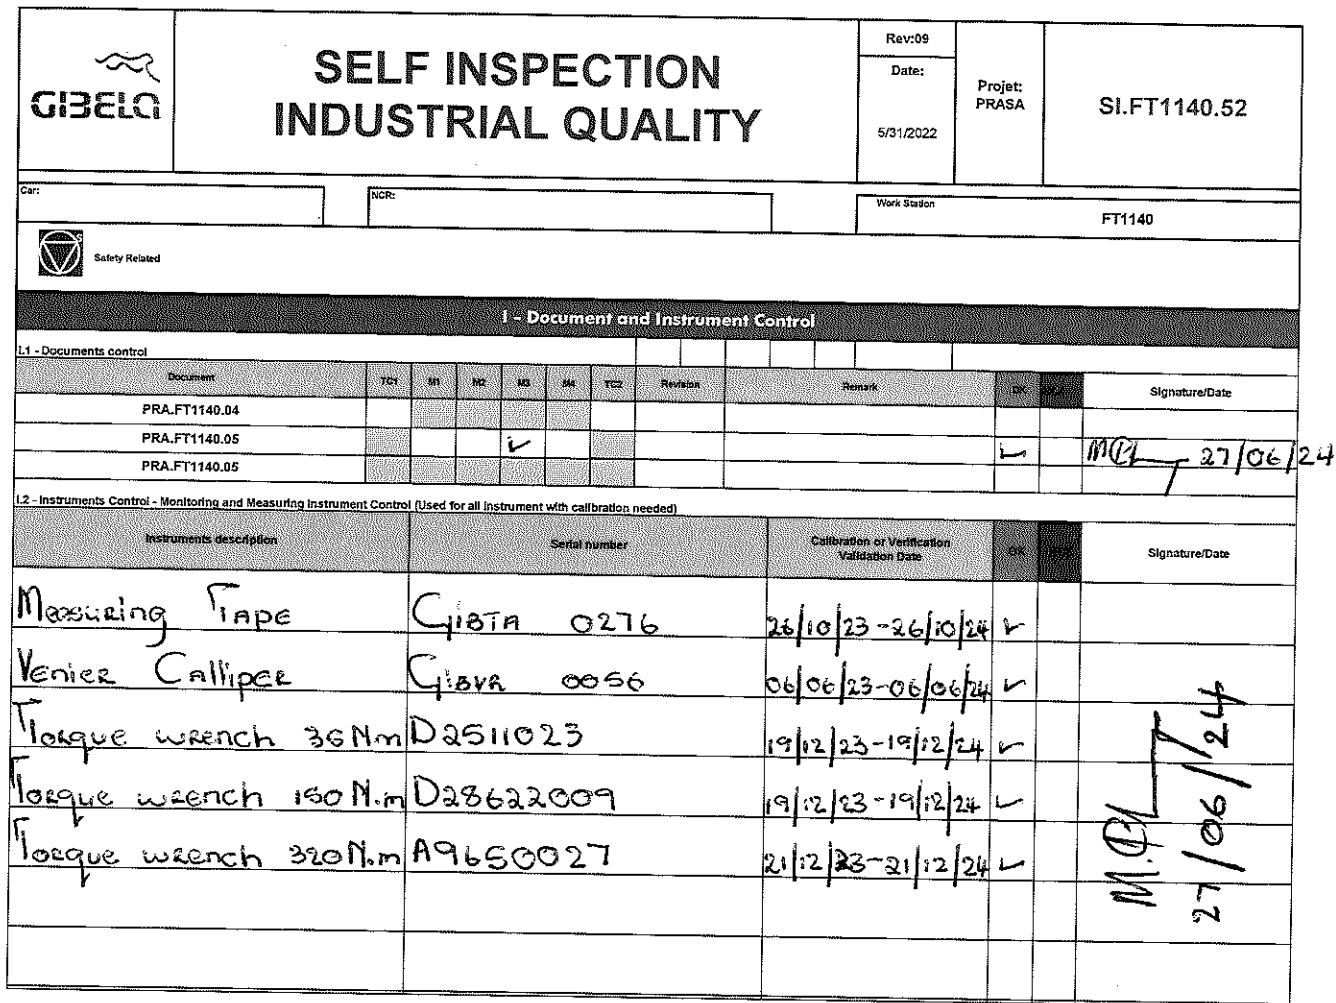 GIBELA
SELF INSPECTION
INDUSTRIAL QUALITY
Rev:09
Date:
5/31/2022
Projet:
PRASA
SI.FT1140.52
Car:
NCR:
Work Station
FT1140
Safety Related
I - Document and Instrument Control
I.1 - Documents control
Document TC1 M1 M2 M3 M4 TC2 Revision Remark OK Signature/Date
PRA.FT1140.04
PRA.FT1140.05 ✓ ✓ 27/06/24
PRA.FT1140.05
I.2 - Instruments Control - Monitoring and Measuring Instrument Control (Used for all Instrument with calibration needed)
Instruments description Serial number Calibration or Verification Validation Date OK Signature/Date
Measuring Tape GIBTA 0276 26/10/23-26/10/24 ✓
Venier Calliper GIBVR 0056 06/06/23-06/06/24 ✓
Torque wrench 36 Nm D2511023 19/12/23-19/12/24 ✓
Torque wrench 150 N.m D28622009 19/12/23-19/12/24 ✓
Torque wrench 320 N.m A9650027 21/12/23-21/12/24 ✓
27/06/24